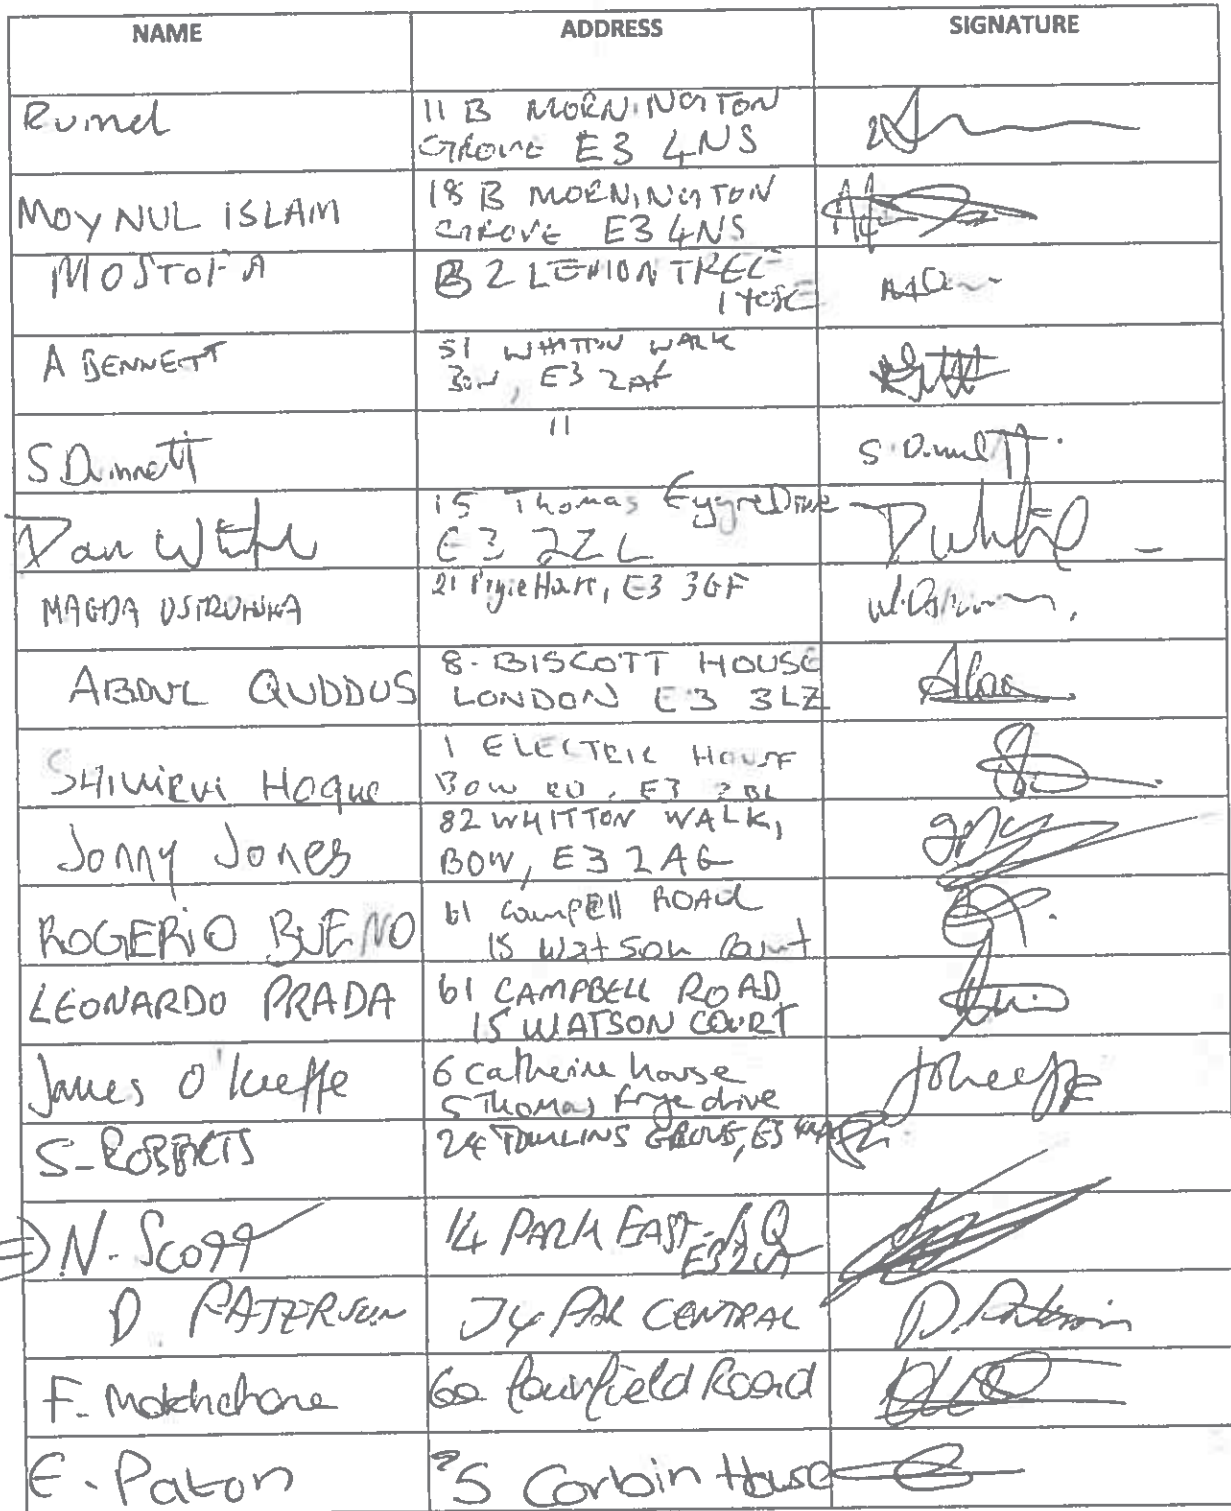 NAME ADDRESS SIGNATURE
Rumel 11 B MORNINGTON
GROVE E3 4NS
MOYNUL ISLAM 18 B MORNINGTON
GROVE E3 4NS
MOSTOFA B 2 LEMON TREE
A BENNETT 51 WHITTON WALK
BOW, E3 2AF
S Dunnett 11 S. Dunnett.
Dan 15 Thomas Drive
E3 2ZL
MAGDA 21 E3 3GF
ABDUL QUDDUS 8- BISCOTT HOUSE
LONDON E3 3LZ
Hoque 1 ELECTRIC HOUSE
BOW RD, E3 2BL
Jonny Jones 82 WHITTON WALK,
BOW, E3 2AG
ROGERIO BUENO 61 ROAD
15 Watson Court
LEONARDO PRADA 61 CAMPBELL ROAD
15 WATSON COURT
James O'Keeffe 6 Catherine house JOKeeffe
5 Thomas Frye drive
S-ROBERTS 24 TOMLINS GROVE, E3
N. Scott 14 PARK EAST
D PATERSON 74 CENTRAL D. Paterson
F. Mokhchane 60 Road
E. Paton 5 Corbin House